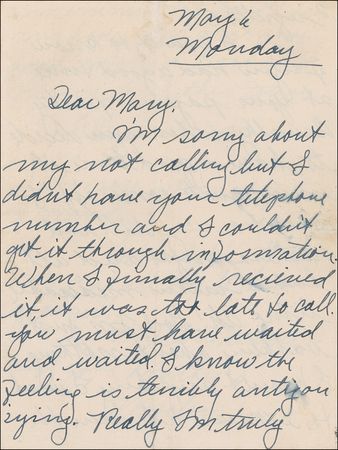 May 6
Monday
Dear Mary,
I'm sorry about
my not calling but I
didn't have your telephone
number and I couldn't
get it through information.
When I finally recieved
it, it was to late to call.
you must have waited
and waited. I know the
feeling is terribly
rying. Really I'm truly